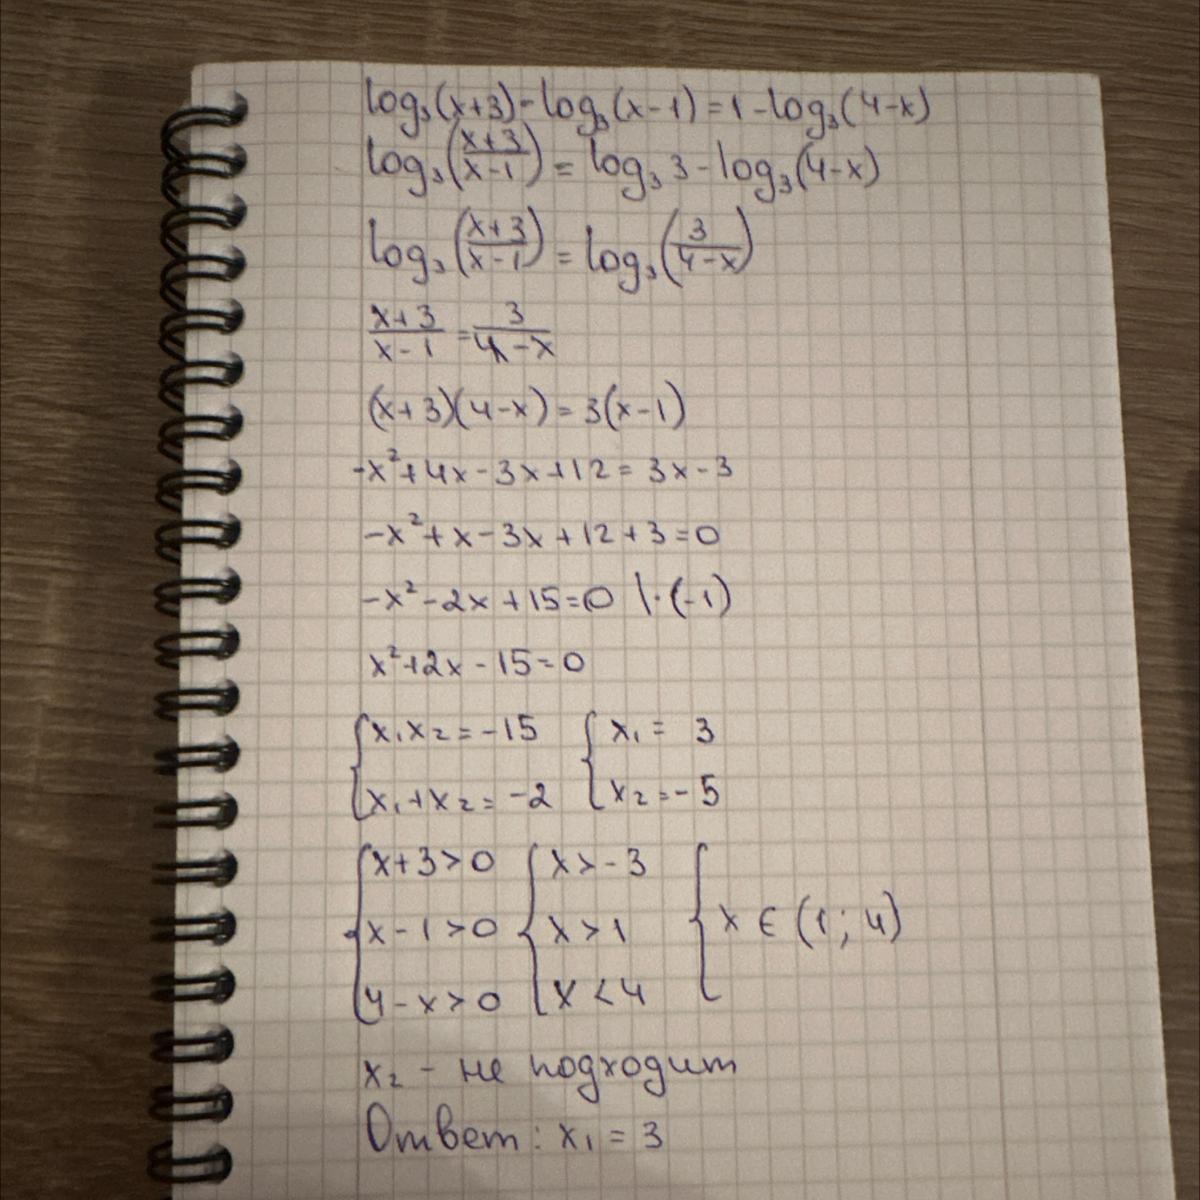 log₃(x+3)-log₃(x-1)=1-log₃(4-x)
log₃((x+3)/(x-1))=log₃3-log₃(4-x)
log₃((x+3)/(x-1))=log₃(3/(4-x))
(x+3)/(x-1)=3/(4-x)
(x+3)(4-x)=3(x-1)
-x²+4x-3x+12=3x-3
-x²+x-3x+12+3=0
-x²-2x+15=0 |·(-1)
x²+2x-15=0
{x₁x₂=-15 {x₁=3
x₁+x₂=-2 x₂=-5
{x+3>0 {x>-3
x-1>0 x>1 {x∈(1;4)
4-x>0 x<4
x₂ - не подходит
Ответ: x₁=3